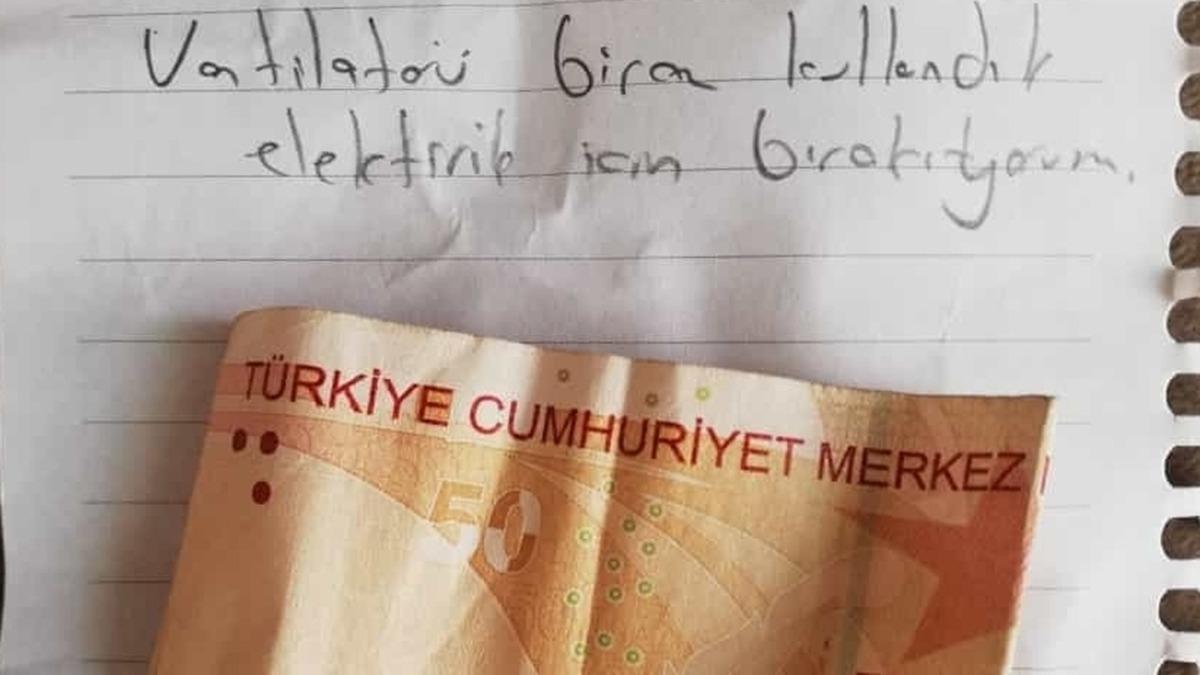 Vatilatörü biraz kullandık
elektirik için bırakıyorum.
TÜRKİYE CUMHURİYET MERKEZ
50